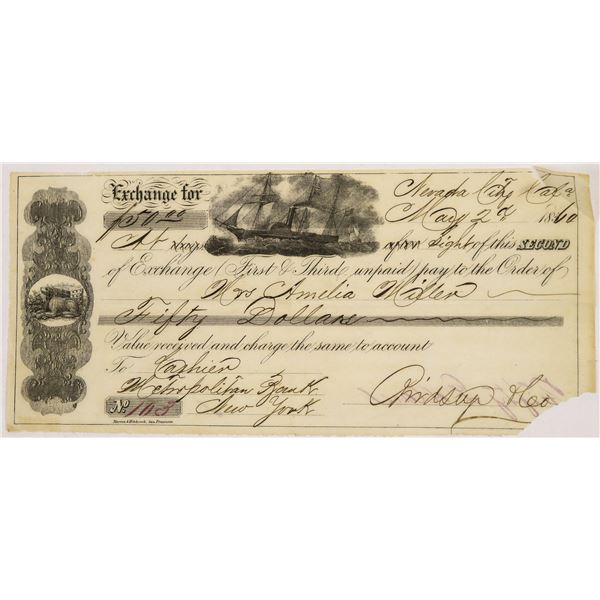 Exchange for
Nevada City Cala
$50.00
May 22 1860
At sight of this SECOND
of Exchange (First & Third unpaid) pay to the Order of
Mrs Amelia Miller
Fifty Dollars
Value received and charge the same to account
To Cashier
Metropolitan Bank
No. 103 New York
Birdseye & Co